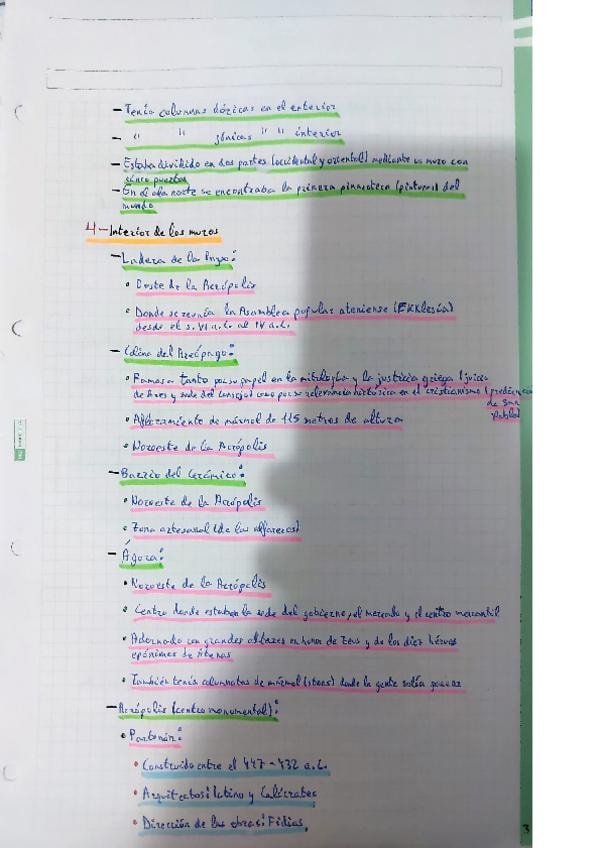 - Tenía columnas dóricas en el exterior
- " " jónicas " " interior
- Estaba dividido en dos partes (occidental y oriental) mediante un muro con
cinco puertas
- En el ala norte se encontraba la primera pinacoteca (pinturas) del
mundo
4- Interior de los muros
- Ladera de la Pnyx:
• Oeste de la Acrópolis
• Donde se reunía la Asamblea popular ateniense (EKKlesía)
desde el s. VI a.C. al IV a.C.
- Colina del Areópago:
• Famosa tanto por su papel en la mitología y la justicia griega (juicio
de Ares y sede del consejo) como por su relevancia histórica en el cristianismo (predicación
de San
Pablo)
• Afloramiento de mármol de 115 metros de altura
• Noroeste de la Acrópolis
- Barrio del Cerámico:
• Noroeste de la Acrópolis
• Zona artesanal (de los alfareros)
- Ágora:
• Noroeste de la Acrópolis
• Centro donde estaba la sede del gobierno, el mercado y el centro mercantil
• Adornado con grandes altares en honor de Zeus y de los diez héroes
epónimos de Atenas
• También tenía columnatas de mármol (stoas) donde la gente solía
- Acrópolis (centro monumental):
• Partenón:
• Construido entre el 447-432 a.C.
• Arquitectos: Ictino y Calícrates
• Dirección de las obras: Fidias
3